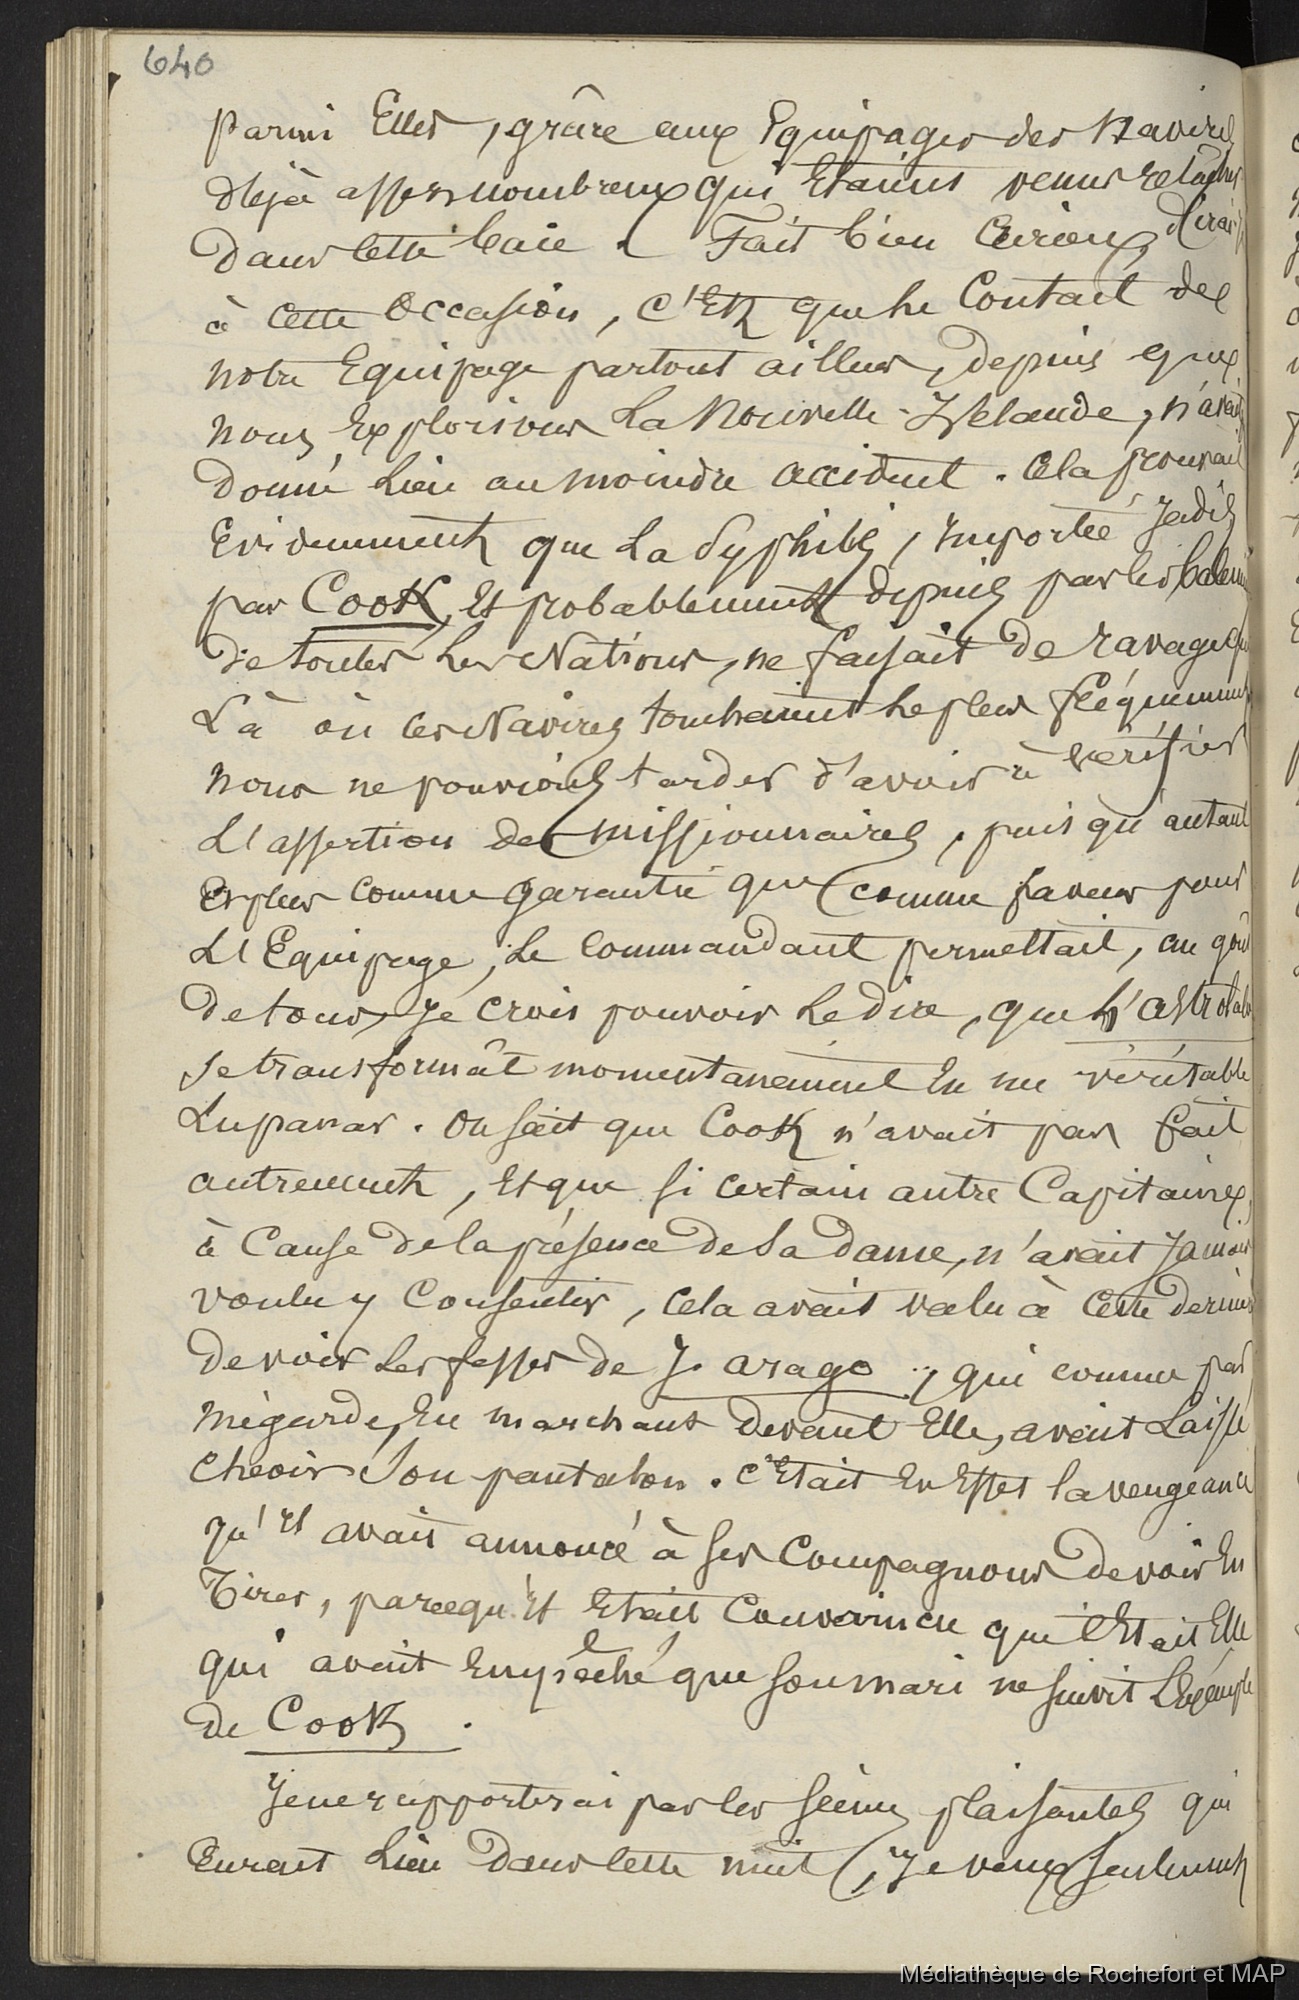 640
parmi Elles, grâce aux Equipages des Navires
déjà assez nombreux qui Etaient venus relâcher
dans cette baie. Fait bien Curieux, dirai-je
à cette Occasion, c'Est que le Contact de
notre Equipage partout ailleurs, depuis que
nous Explorions La Nouvelle-Zélande, n'avait
donné Lieu au moindre accident. Cela prouvait
Evidemment que La Syphilis, Importée Jadis
par Cook, Et probablement depuis par les
de toutes Les Nations, ne faisait de ravages que
Là où les Navires touchaient Le plus fréquemment
nous ne pouvions tarder d'avoir à Vérifier
L'assertion des missionnaires, puis qu'autant
Et plus comme garantie que comme faveur pour
L'Equipage, Le Commandant permettait, au goût
de tous, Je crois pouvoir Le dire, que L'astrolabe
se transformât momentanément En un véritable
Lupanar. On sait que Cook n'avait pas fait
autrement, Et que si certain autre Capitaine,
à Cause de la présence de Sa dame, n'avait Jamais
voulu y Consentir, Cela avait valu à Cette dernière
de voir Les fesses de J. arago, qui comme par
mégarde, En marchant devant Elle, avait Laissé
cheoir Son pantalon. c'Etait En Effet la vengeance
qu'Il avait annoncé à ses Compagnons devoir En
Tirer, parcequ'Il Etait Convaincu que c'Etait Elle
qui avait Empêché que son mari ne suivit L'Exemple
de Cook.
Je ne rapporterai pas les scènes plaisantes qui
Eurent Lieu dans cette nuit, Je veux seulement
Médiathèque de Rochefort et MAP